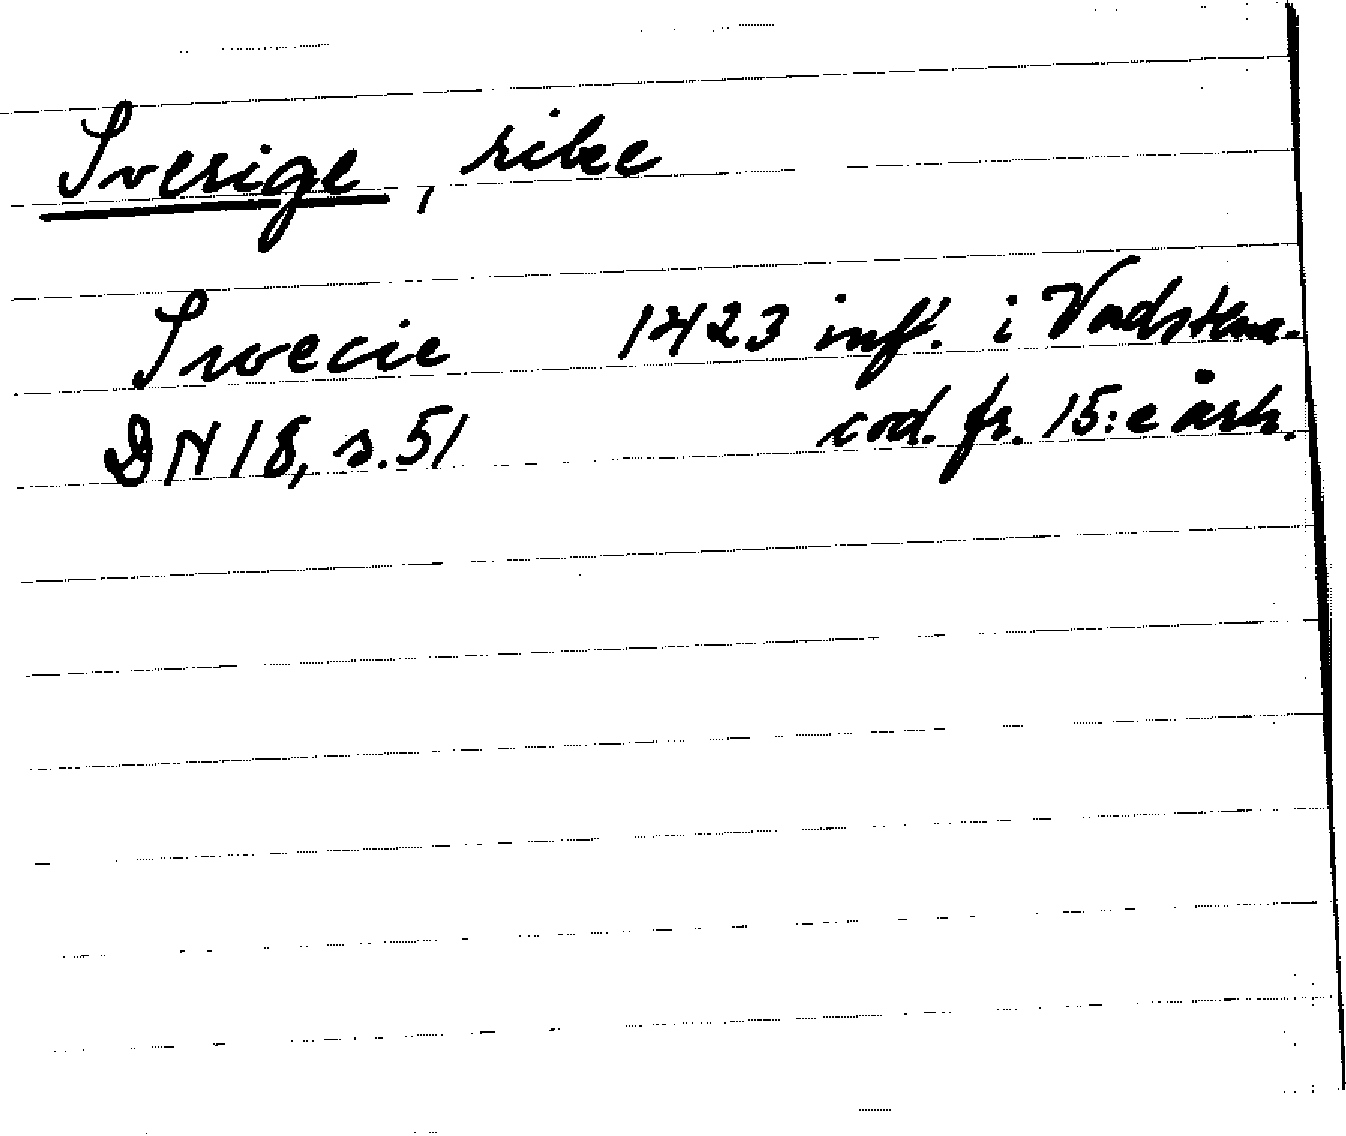 Sverige, rike
Swecie 1423 inf. i Vadstena-
DN 18, s. 51 cod. fr. 15:e årh.